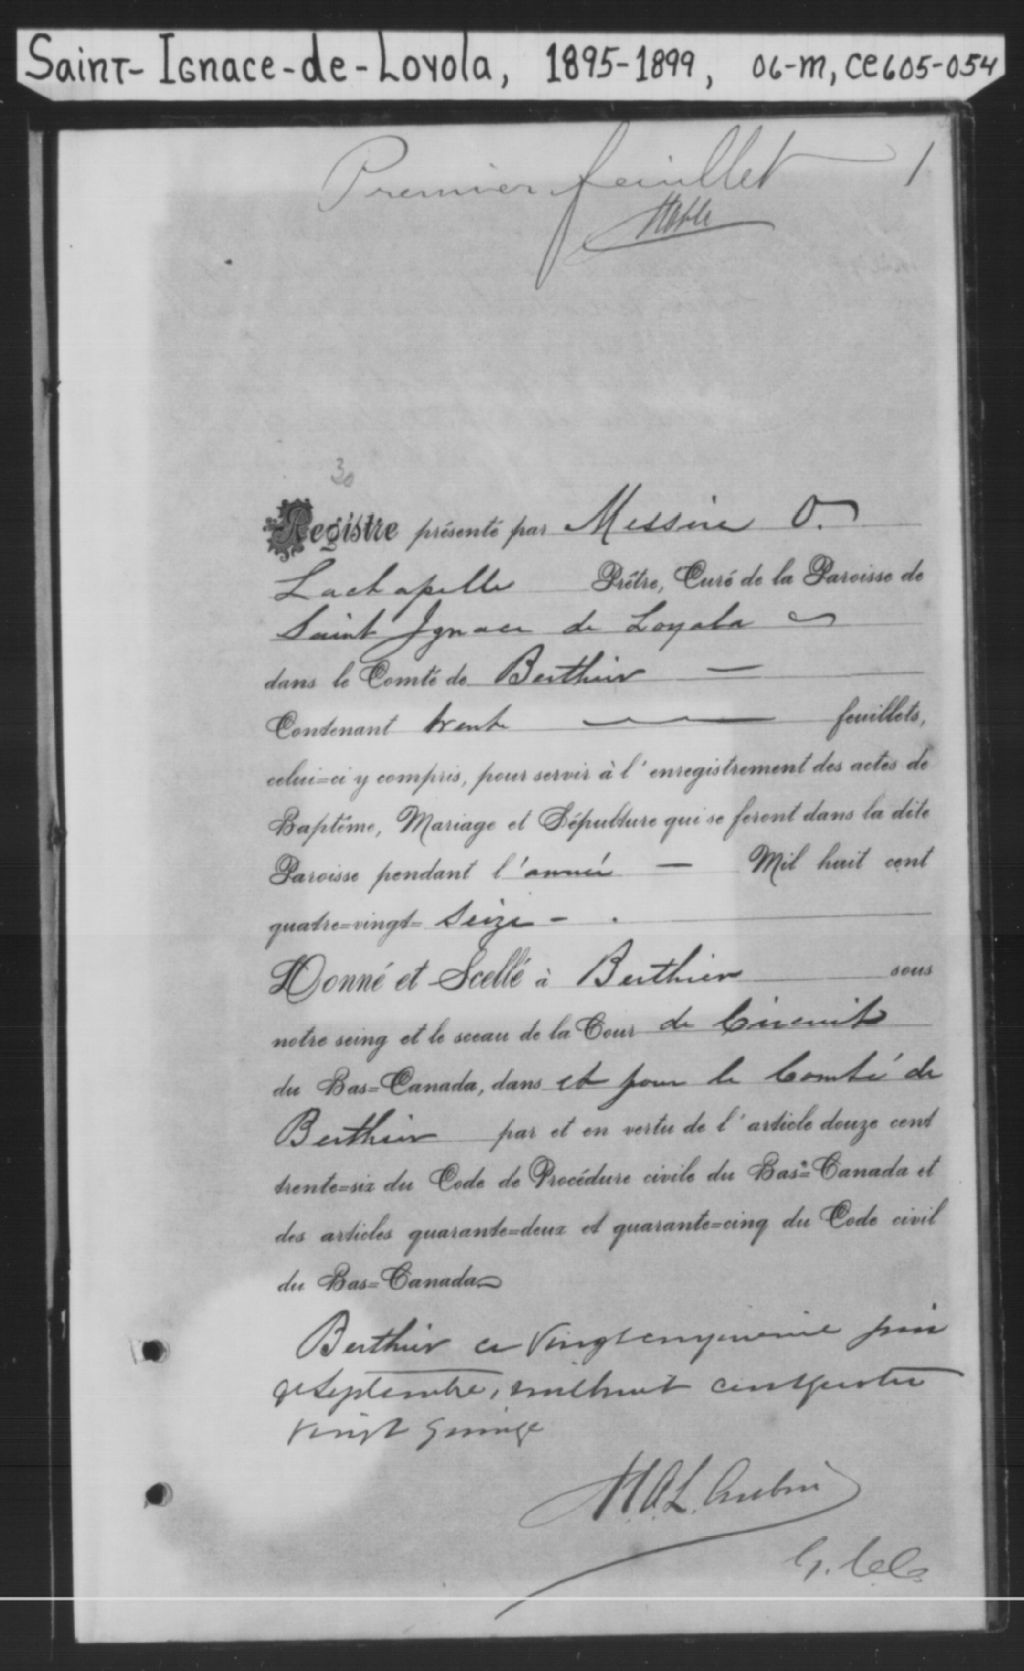 Saint-Ignace-de-Loyola, 1895-1899, 06-M, CE605-054
Premier feuillet 1
30
Registre présenté par Messire O.
Lachapelle Prêtre, Curé de la Paroisse de
Saint Ignace de Loyola
dans le Comté de Berthier —
Contenant trente — feuillets,
celui=ci y compris, pour servir à l'enregistrement des actes de
Baptême, Mariage et Sépulture qui se feront dans la dite
Paroisse pendant l'année — Mil huit cent
quatre=vingt= Seize - .
Donné et Scellé à Berthier sous
notre seing et le sceau de la Cour de Circuit
du Bas=Canada, dans et pour le Comté de
Berthier par et en vertu de l'article douze cent
trente=six du Code de Procédure civile du Bas=Canada et
des articles quarante=deux et quarante=cinq du Code civil
du Bas=Canada
Berthier ce Vingt cinquieme jour
de Septembre, mil huit cent quatre
vingt quinze
H.A.L. Aubin